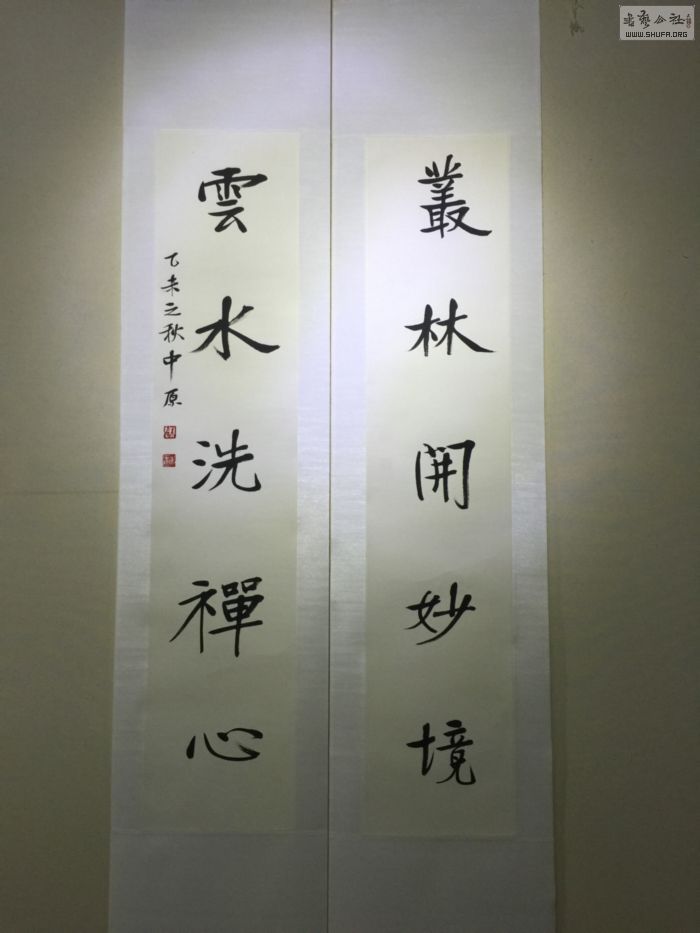 叢林開妙境
雲水洗禪心
乙未之秋中原
WWW.SHUFA.ORG